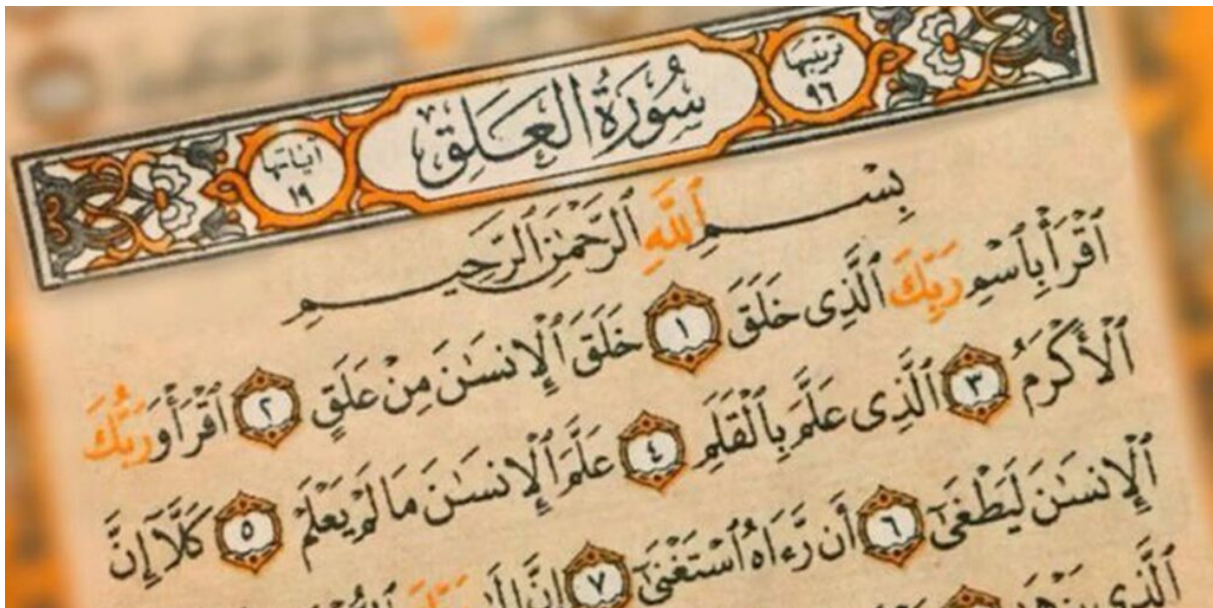 ترتيبها ٩٦
سُورَةُ العَلَقِ
آياتها ١٩
بِسْمِ ٱللَّهِ ٱلرَّحْمَٰنِ ٱلرَّحِيمِ
ٱقْرَأْ بِٱسْمِ رَبِّكَ ٱلَّذِى خَلَقَ ١ خَلَقَ ٱلْإِنسَٰنَ مِنْ عَلَقٍ ٢ ٱقْرَأْ وَرَبُّكَ
ٱلْأَكْرَمُ ٣ ٱلَّذِى عَلَّمَ بِٱلْقَلَمِ ٤ عَلَّمَ ٱلْإِنسَٰنَ مَا لَمْ يَعْلَمْ ٥ كَلَّآ إِنَّ
ٱلْإِنسَٰنَ لَيَطْغَىٰٓ ٦ أَن رَّءَاهُ ٱسْتَغْنَىٰٓ ٧ إِنَّ إِلَىٰ
ٱلَّذِى